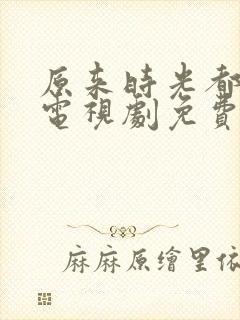 原來時光都
電視劇免費
麻麻原繪里依